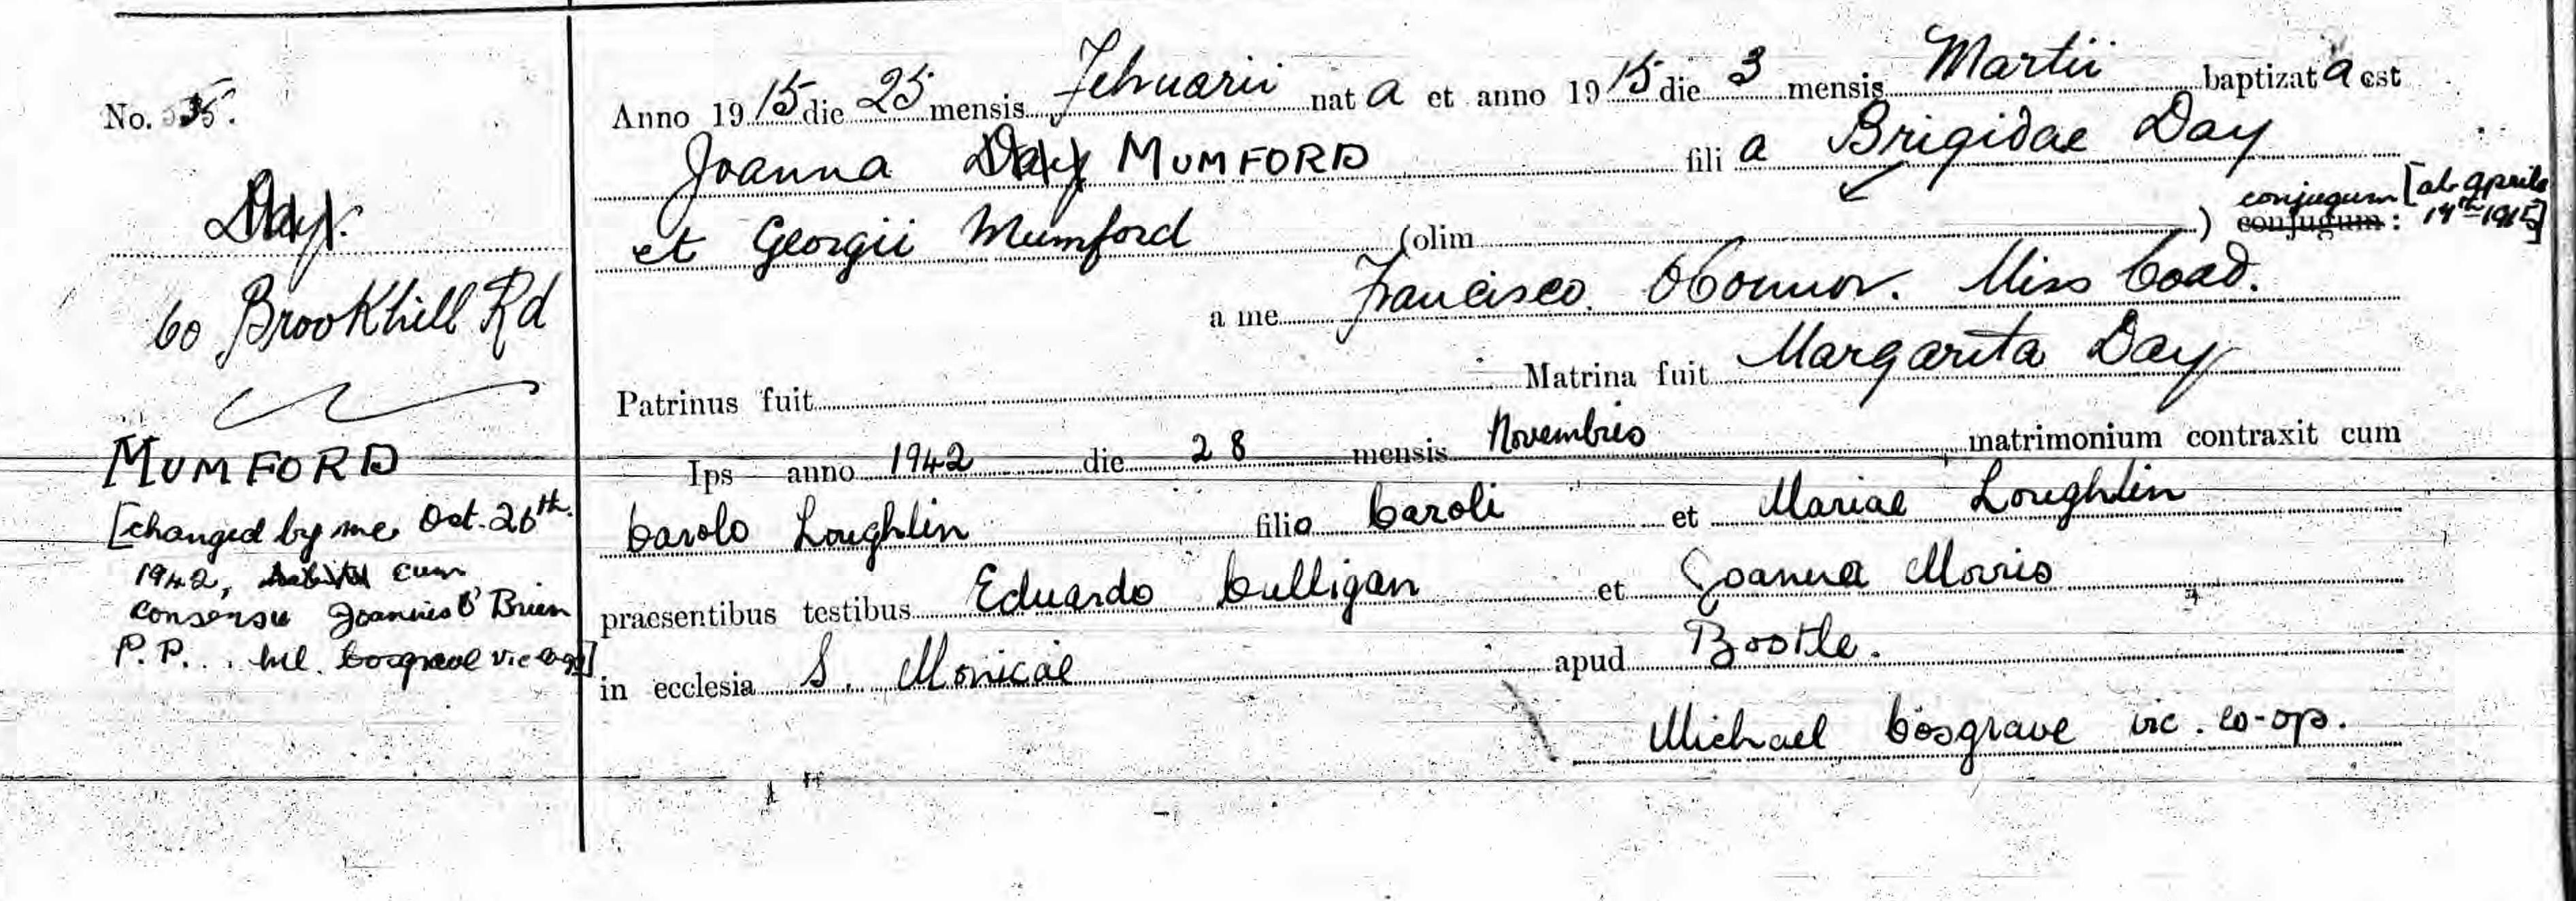 No. 35.
Day.
60 Brookhill Rd
MUMFORD
[changed by me Oct. 26th.
1942, cum
consensu Joannies O'Brien
P.P. . . Cosgrave vic coop]
Anno 1915 die 25 mensis Februarii nata et anno 1915 die 3 mensis Martii baptizata est
Joanna Day MUMFORD filia Brigidae Day
et Georgii Mumford (olim ) conjugum : conjugum [ab Aprile 14th 1915]
a me Francisco. O'Connor. Miss Coad.
Patrinus fuit Matrina fuit Margarita Day
Ips anno 1942 die 28 mensis Novembris matrimonium contraxit cum
Carolo Loughlin filio Caroli et Mariae Loughlin
praesentibus testibus Eduardo Culligan et Joanna Morris
in ecclesia S. Monicae apud Bootle.
Michael Cosgrave vic. co-op.